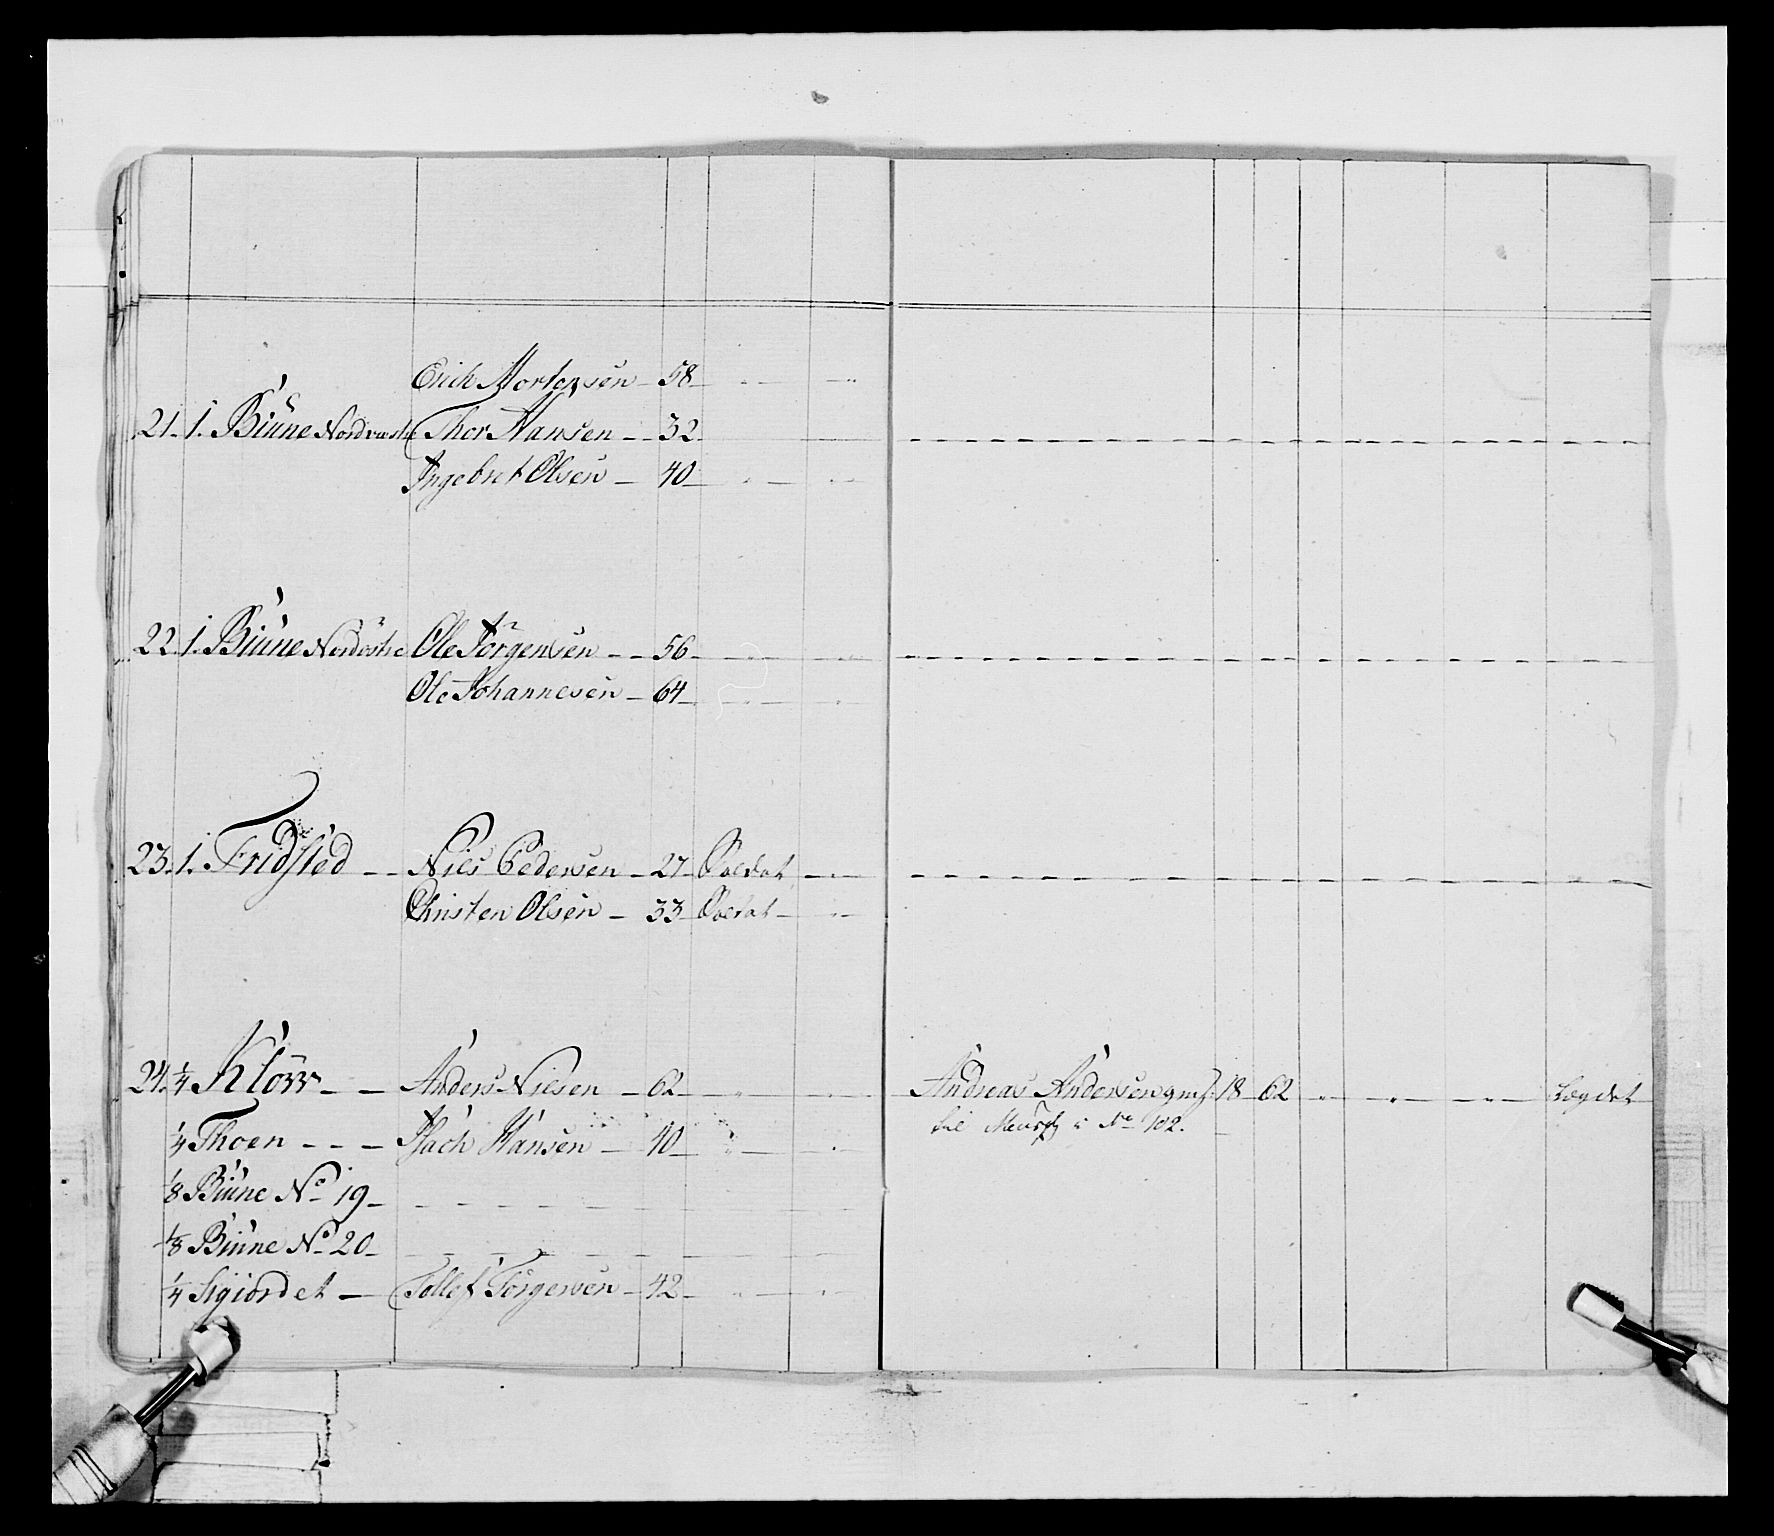 Erich Mortensen - 58 -
21. 1. Biüne Nordvestre Thor Hansen - - 32
Ingebret Olsen - 40 -
22. 1. Biüne Nordöstre Ole Jörgensen - - 56 -
Ole Johannesen - 64 -
23. 1. Fridsted - - Niels Pedersen - 27 - Soldat -
Christen Olsen - 33 - Soldat -
24. 1/4 Klörr - - Anders Nielsen - 62 - Andreas Andersen 18 - 62 Lægdet
1/4 Thoen - - - Isach Hansen - 40 - til No 102.
1/8 Biüne No 19 -
1/8 Biüne No 20 -
1/4 Tollef Törgersen - 42 -